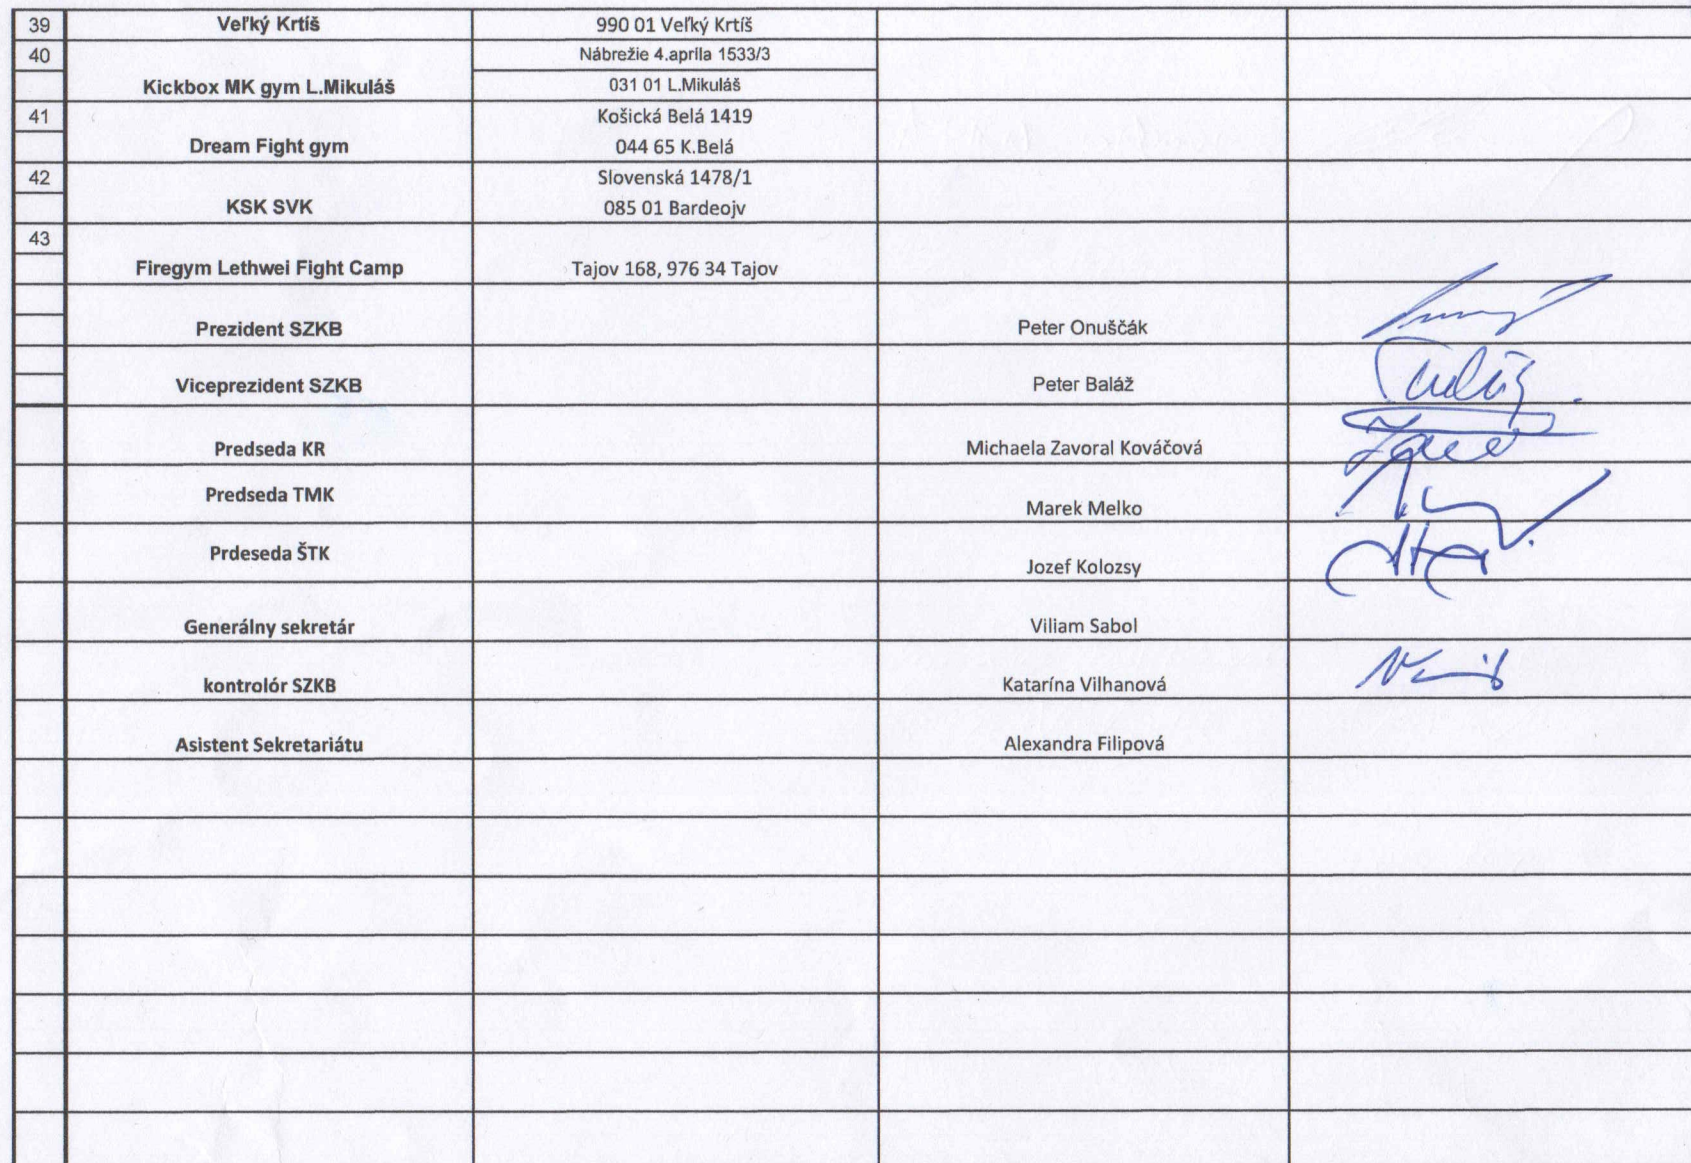 39 Veľký Krtíš 990 01 Veľký Krtíš
40 Nábrežie 4.apríla 1533/3
Kickbox MK gym L.Mikuláš 031 01 L.Mikuláš
41 Košická Belá 1419
Dream Fight gym 044 65 K.Belá
42 Slovenská 1478/1
KSK SVK 085 01 Bardeojv
43
Firegym Lethwei Fight Camp Tajov 168, 976 34 Tajov
Prezident SZKB Peter Onuščák
Viceprezident SZKB Peter Baláž
Predseda KR Michaela Zavoral Kováčová
Predseda TMK Marek Melko
Prdeseda ŠTK Jozef Kolozsy
Generálny sekretár Viliam Sabol
kontrolór SZKB Katarína Vilhanová
Asistent Sekretariátu Alexandra Filipová